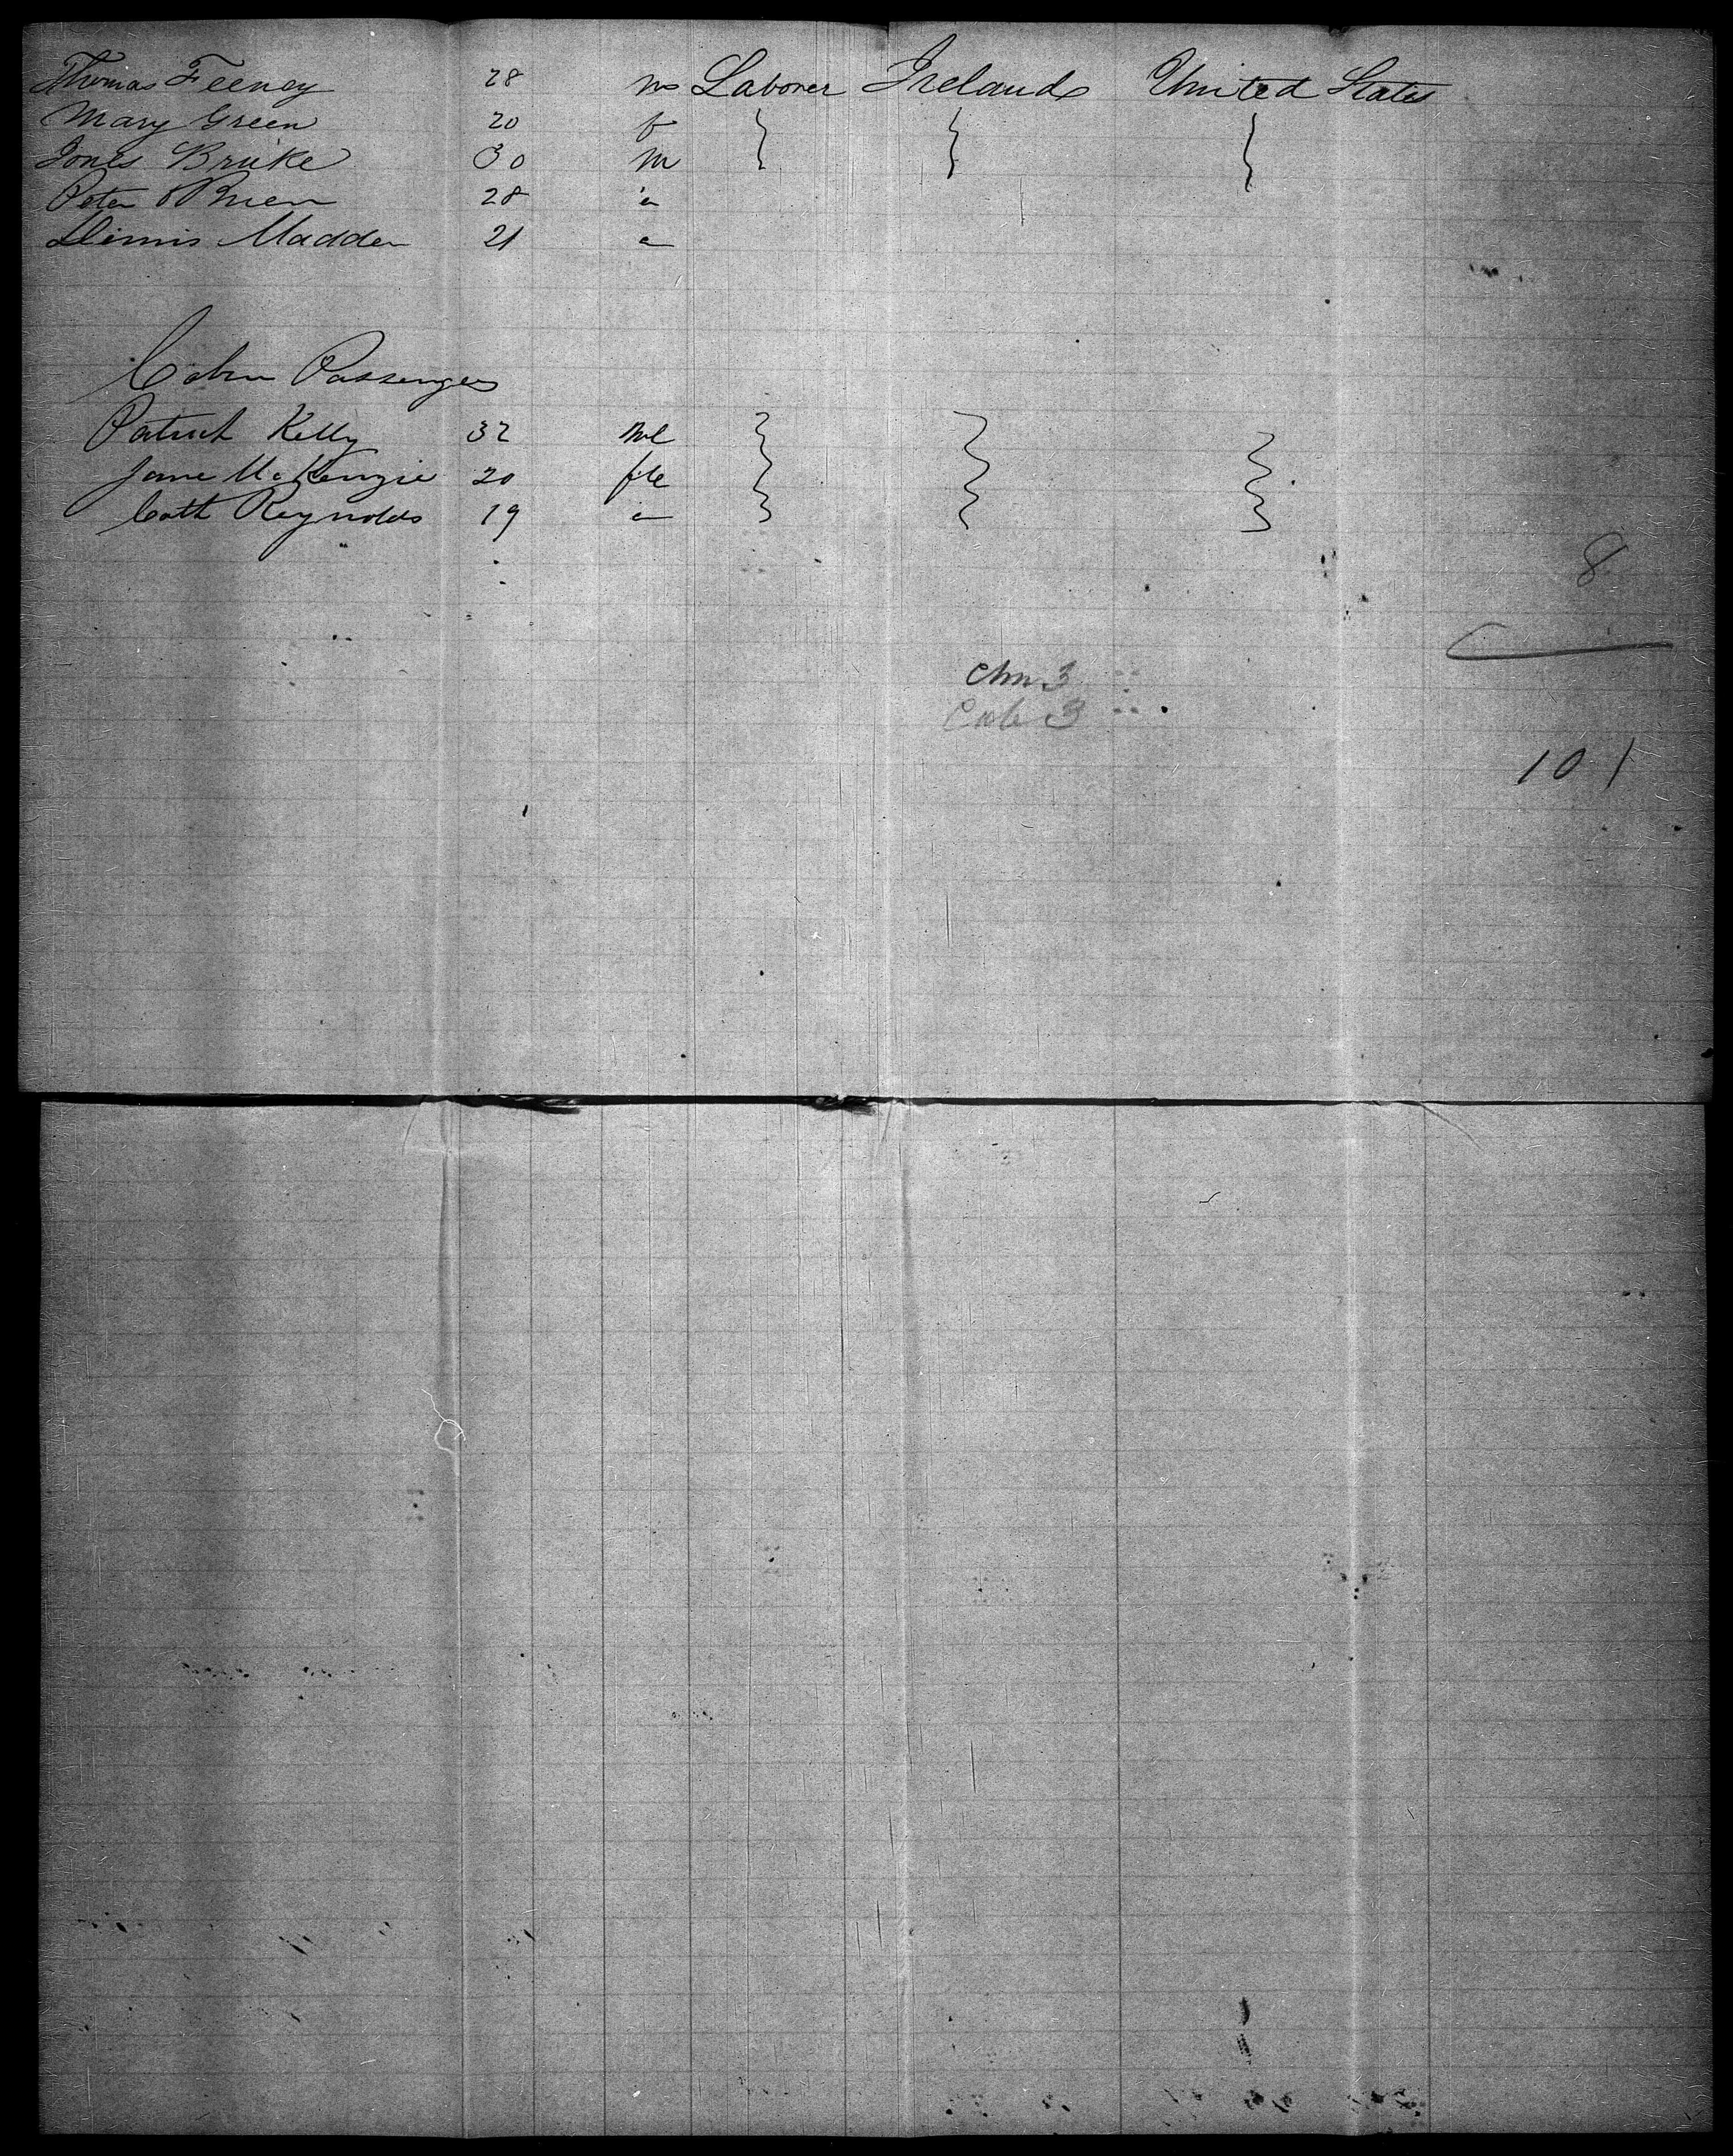 Thomas Feeney 28 m Laborer Ireland United States
Mary Green 20 f
Jones Bruke 30 m
Peter OBrien 28 "
Dennis Madden 21 "
Cabin Passengers
Patrick Kelly 32 ml
Jane McKenzie 20 fle
Cath Reynolds 19 "
8
Chn 3
Cab 3
101